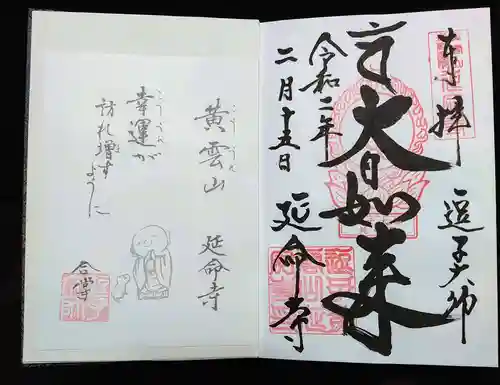 奉拝
逗子大師
大日如来
令和二年
二月十五日
延命寺
こううんざん
黄雲山
延命寺
こううん
幸運が
訪れ増す
ように
合掌